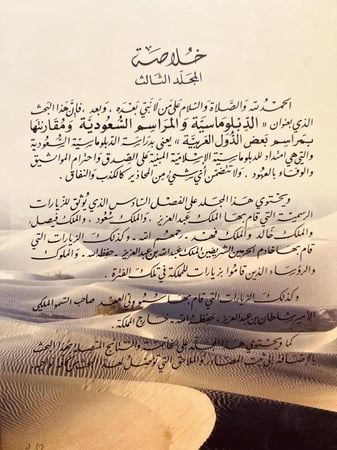 خلاصة
المجلد الثالث
الحمد لله والصلاة والسلام على من لا نبي بعده، وبعد، فإن هذا البحث
الذي بعنوان « الدبلوماسية والمراسم السعودية ومقارنتها
بمراسم بعض الدول العربية » يعنى بدراسة الدبلوماسية السعودية
والتي هي امتداد للدبلوماسية الإسلامية المبنية على الصدق واحترام المواثيق
والوفاء بالعهود. ولا تتضمن أي شيء من المحاذير كالكذب والنفاق.
ويحتوي هذا المجلد على الفصل السادس الذي يوثق للزيارات
الرسمية التي قام بها الملك عبدالعزيز. والملك سعود، والملك فيصل،
والملك خالد والملك فهد. رحمهم الله. وكذلك الزيارات التي
قام بها خادم الحرمين الشريفين الملك عبدالله بن عبدالعزيز. حفظه الله. والملوك
والرؤساء الذين قاموا بزيارات للمملكة في تلك الفترة.
وكذلك الزيارات التي قام بها ولي العهد صاحب السمو الملكي
الأمير سلطان بن عبدالعزيز. حفظه الله. خارج المملكة.
كما ويحتوي هذا المجلد على خاتمة والنتائج المتصلة بهذا البحث
بالإضافة إلى ثبت المصادر والملاحق التي